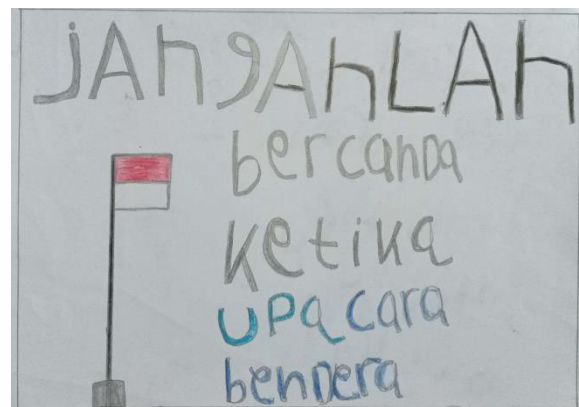 jAngAnLAh
bercanDa
Ketika
UPacara
benDera